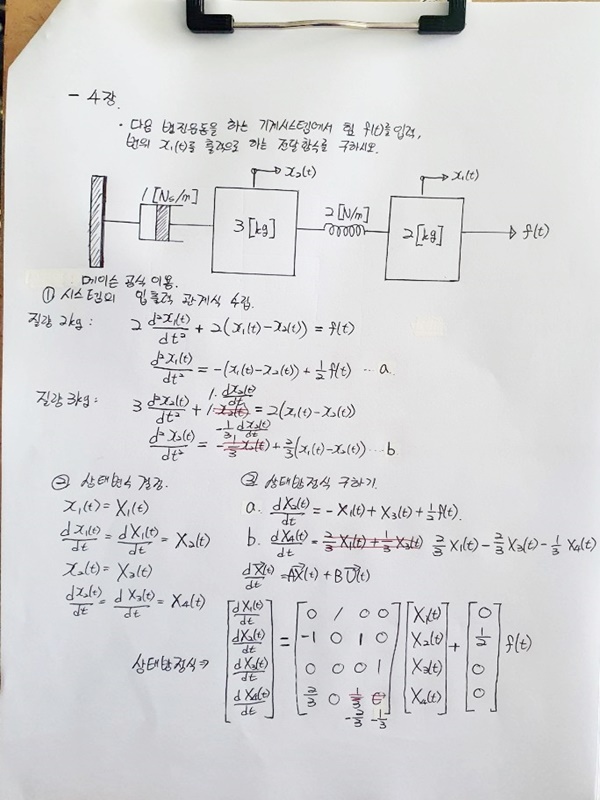 - 4장.
· 다음 병진운동을 하는 기계시스템에서 힘 f(t)를 입력,
변위 x₁(t)를 출력으로 하는 전달함수를 구하시오.
x₂(t) x₁(t)
1 [Ns/m] 3 [kg] 2 [N/m] 2 [kg] f(t)
메이슨 공식 이용.
① 시스템의 입출력 관계식 수립.
질량 2kg : 2 d²x₁(t)/dt² + 2(x₁(t)-x₂(t)) = f(t)
d²x₁(t)/dt² = -(x₁(t)-x₂(t)) + 1/2 f(t) ... a.
질량 3kg : 3 d²x₂(t)/dt² + 1·dx₂(t)/dt = 2(x₁(t)-x₂(t))
d²x₂(t)/dt² = -1/3 dx₂(t)/dt + 2/3(x₁(t)-x₂(t)) ... b
② 상태변수 결정.
x₁(t) = X₁(t)
dx₁(t)/dt = dX₁(t)/dt = X₂(t)
x₂(t) = X₃(t)
dx₂(t)/dt = dX₃(t)/dt = X₄(t)
③ 상태방정식 구하기.
a. dX₂(t)/dt = -X₁(t) + X₃(t) + 1/2 f(t).
b. dX₄(t)/dt = 2/3 X₁(t) + 1/3 X₃(t) 2/3 X₁(t) - 2/3 X₃(t) - 1/3 X₄(t)
dX(t)/dt = AX(t) + BU(t)
상태방정식 ⇒
dX₁(t)/dt 0 1 0 0 X₁(t) 0
dX₂(t)/dt = -1 0 1 0 X₂(t) + 1/2 f(t)
dX₃(t)/dt 0 0 0 1 X₃(t) 0
dX₄(t)/dt 2/3 0 1/3 0 X₄(t) 0
-2/3 -1/3